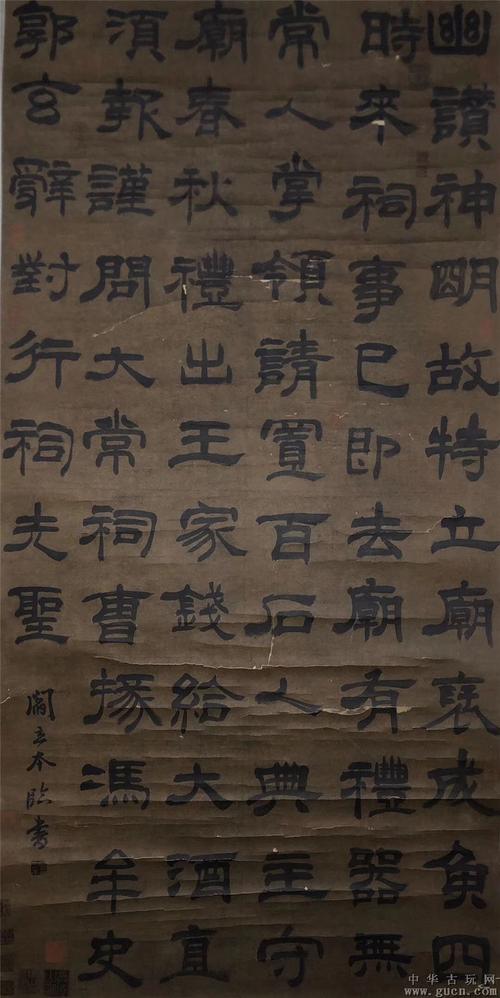 幽讃神明故特立廟襃成侯四
時來祠事已即去廟有禮器無
常人掌領請置百石人典主守
廟春秋禮出王家錢給大酒直
須報謹問大常祠曹掾馮牟史
郭玄辭對行祠先聖
閻立本臨書
中华古玩网
www.gucn.com